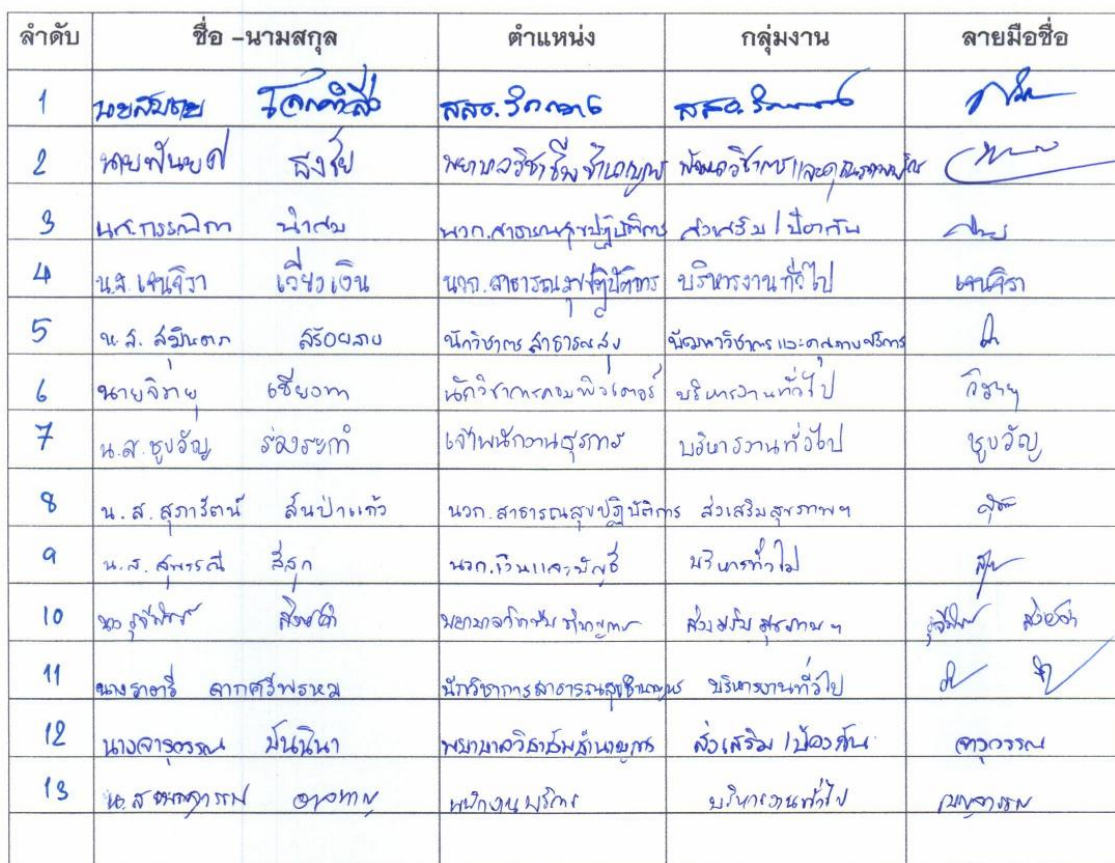 ลำดับ ชื่อ -นามสกุล ตำแหน่ง กลุ่มงาน ลายมือชื่อ
1 นายสมชาย สสอ. สสอ.
2 นายพันยศ ธงชัย พยาบาลวิชาชีพชำนาญการ พัฒนาวิชาการและคุณภาพบริการ
3 น.ส.กรรณิกา นวก.สาธารณสุขปฏิบัติการ ส่งเสริม/ป้องกัน
4 น.ส.เจนจิรา เวียงเงิน นวก.สาธารณสุขปฏิบัติการ บริหารงานทั่วไป เจนจิรา
5 น.ส. สร้อยสาย นักวิชาการสาธารณสุข พัฒนาวิชาการและคุณภาพบริการ
6 นายจิรายุ เชียงทา นักวิชาการคอมพิวเตอร์ บริหารงานทั่วไป จิรายุ
7 น.ส.ชูขวัญ ร่องระกำ เจ้าพนักงานธุรการ บริหารงานทั่วไป ชูขวัญ
8 น.ส.สุภารัตน์ สันป่าแก้ว นวก.สาธารณสุขปฏิบัติการ ส่งเสริมสุขภาพฯ
9 น.ส.สุพรรณี สีสุก นวก.เงินและบัญชี บริหารทั่วไป
10 นาง พยาบาลวิชาชีพชำนาญการ ส่งเสริมสุขภาพฯ
11 นางราตรี ลากศรีพรหม นักวิชาการสาธารณสุขชำนาญการ บริหารงานทั่วไป
12 นางจารุวรรณ ปันนินา พยาบาลวิชาชีพชำนาญการ ส่งเสริม/ป้องกัน จารุวรรณ
13 น.ส. พนักงานบริการ บริหารงานทั่วไป